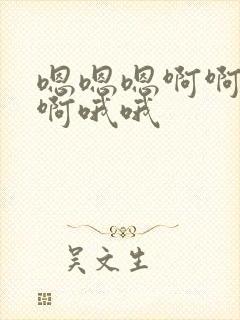 嗯嗯嗯啊啊
啊哦哦
吴文生